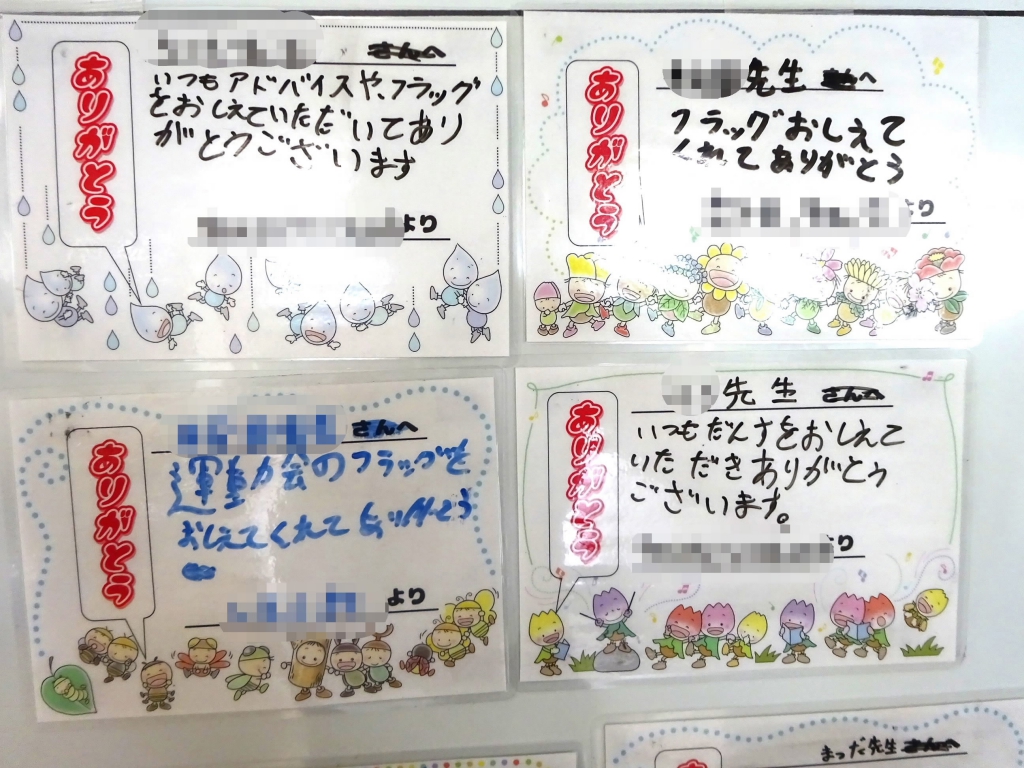 ありがとう
さんへ
いつもアドバイスや、フラッグ
をおしえていただいてあり
がとうございます
より
ありがとう
先生 へ
フラッグおしえて
くれてありがとう
より
ありがとう
さんへ
運動会のフラッグを
おしえてくれてありがとう
より
ありがとう
先生 さんへ
いつもだんすをおしえて
いただきありがとう
ございます。
より
まつだ先生 さんへ
あ